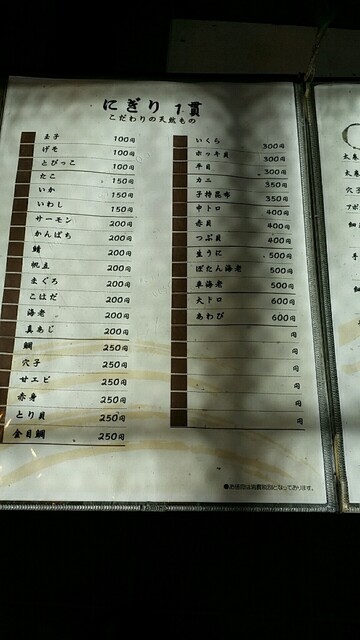 にぎり 1貫
こだわりの天然もの
玉子 100円
げそ 100円
とびっこ 100円
たこ 150円
いか 150円
いわし 150円
サーモン 200円
かんぱち 200円
鯖 200円
帆立 200円
まぐろ 200円
こはだ 200円
海老 200円
真あじ 200円
鯛 250円
穴子 250円
甘エビ 250円
赤身 250円
とり貝 250円
金目鯛 250円
いくら 300円
ホッキ貝 300円
平目 300円
カニ 350円
子持昆布 350円
中トロ 400円
赤貝 400円
つぶ貝 400円
生うに 500円
ぼたん海老 500円
車海老 500円
大トロ 600円
あわび 600円
円
円
円
円
円
円
円
●お値段は消費税別となっております。
太巻
太巻
穴子
アボ
細
手
細